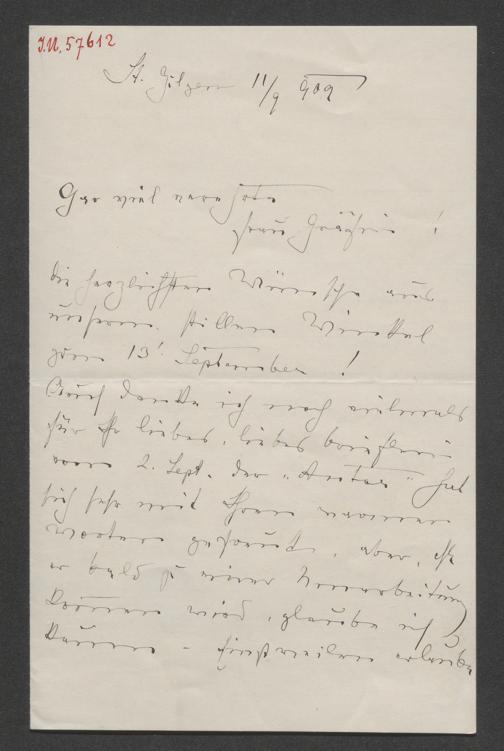 I.N. 57612
St. Gilgen 11/9 909
Gar viel verehrte
Frau Gräfin!
die herzlichsten Wünsche aus
unserem stillen Winkel
zum 13' September!
Auch danke ich noch vielmals
für Ihr liebes, liebes brieflein
vom 2. Sept. der "Autor" hat
sich sehr mit Ihren warmen
Worten gefreut, aber, ob
er bald zu einer Umarbeitung
kommen wird, glaube ich
kaum – Einstweilen erlaube